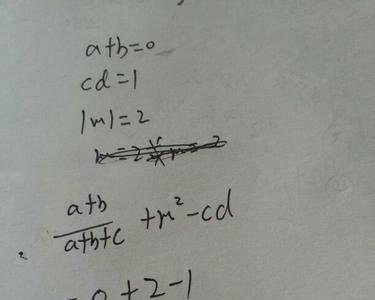 a+b=0
cd=1
|m|=2
a+b
a+b+c
+m²-cd
=0+2-1